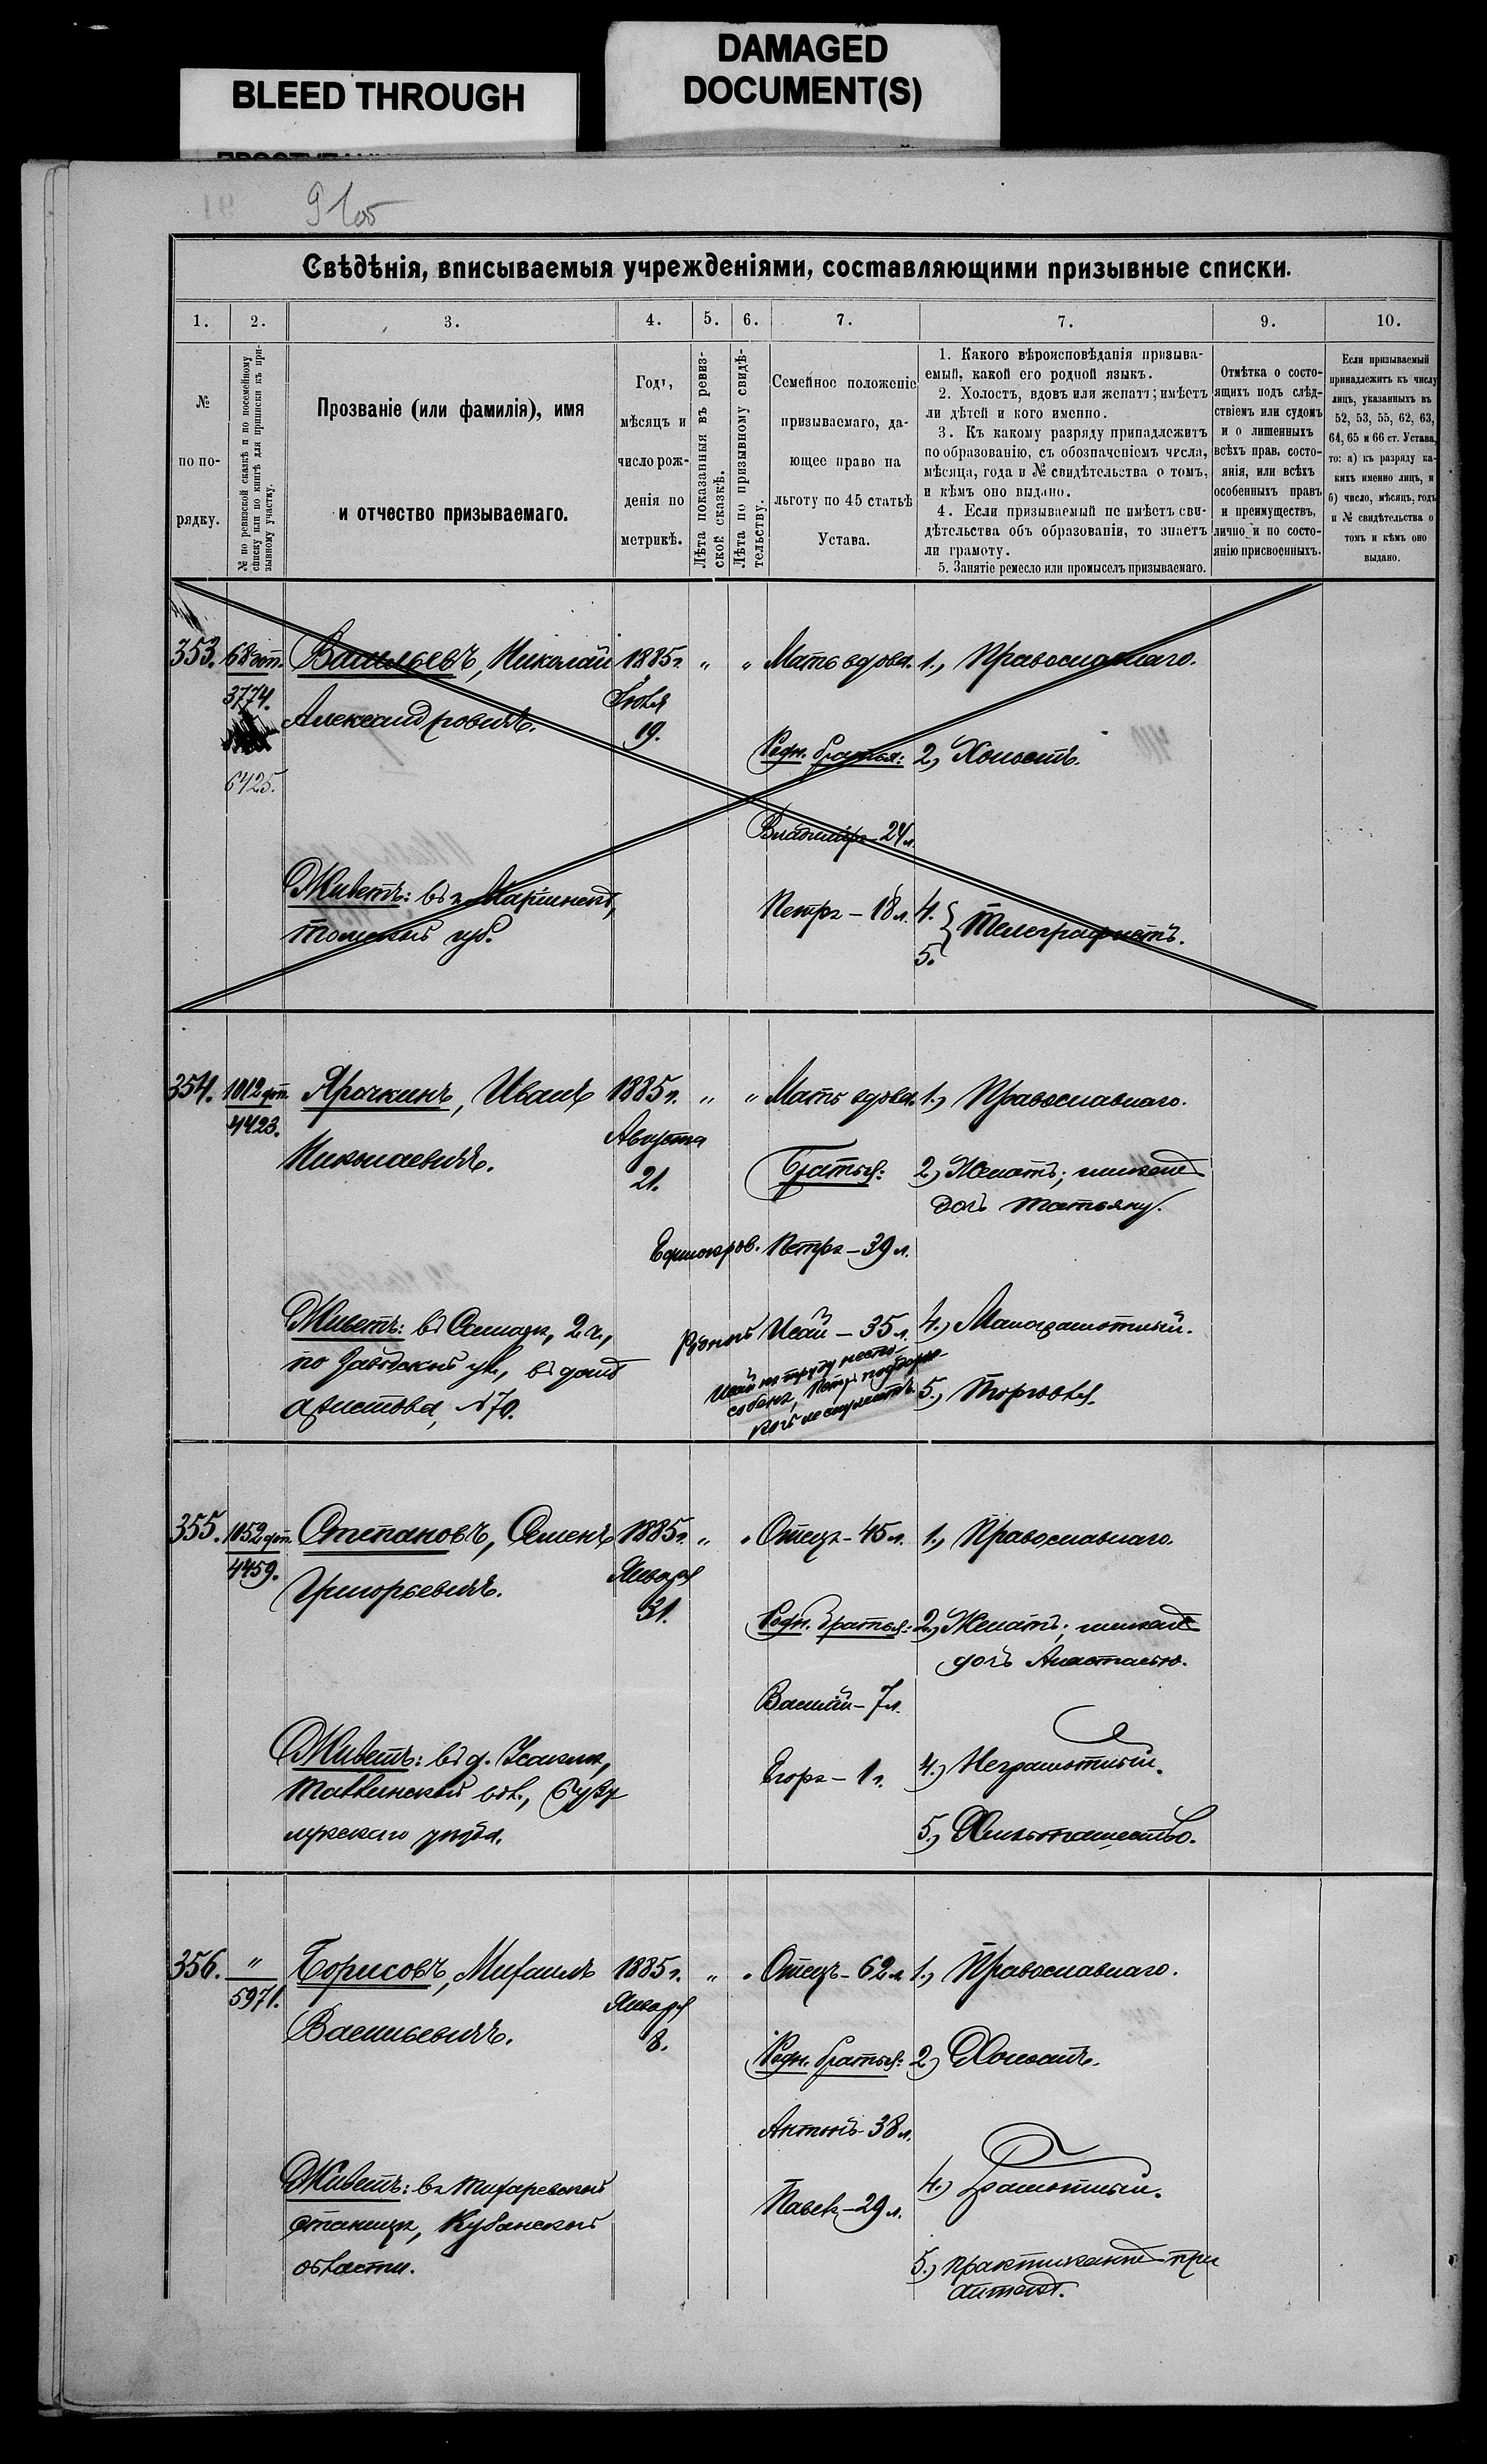 DAMAGED
DOCUMENT(S)
BLEED THROUGH
91об
Свѣдѣнія, вписываемыя учрежденіями, составляющими призывные списки.
1. 2. 3. 4. 5. 6. 7. 7. 9. 10.
№
по по-
рядку.
№ по ревизской сказкѣ и по посемейному
списку или по книгѣ для приписки къ при-
зывному участку.
Прозваніе (или фамилія), имя
и отчество призываемаго.
Годъ,
мѣсяцъ и
число рож-
денія по
метрикѣ.
Лѣта показанныя въ ревиз-
ской сказкѣ.
Лѣта по призывному свидѣ-
тельству.
Семейное положеніе
призываемаго, да-
ющее право на
льготу по 45 статьѣ
Устава.
1. Какого вѣроисповѣданія призыва-
емый, какой его родной языкъ.
2. Холостъ, вдовъ или женатъ; имѣетъ
ли дѣтей и кого именно.
3. Къ какому разряду принадлежитъ
по образованію, съ обозначеніемъ числа,
мѣсяца, года и № свидѣтельства о томъ,
и кѣмъ оно выдано.
4. Если призываемый не имѣетъ сви-
дѣтельства объ образованіи, то знаетъ
ли грамоту.
5. Занятіе ремесло или промыселъ призываемаго.
Отмѣтка о состо-
ящихъ подъ слѣд-
ствіемъ или судомъ
и о лишенныхъ
всѣхъ прав. состо-
янія, или всѣхъ
особенныхъ правъ
и преимуществъ,
лично и по состо-
янію присвоенныхъ.
Если призываемый
принадлежитъ къ числу
лицъ, указанныхъ въ
52, 53, 55, 62, 63,
64, 65 и 66 ст. Устава,
то: а) къ разряду ка-
кихъ именно лицъ, и
б) число, мѣсяцъ, годъ
и № свидѣтельства о
томъ и кѣмъ оно
выдано.
353. 68 доп. Васильевъ, Николай 1885г. " " Мать вдова. 1., Православнаго.
3774.
Александровичъ. Іюля
19.
Родн. братья: 2, Холостъ.
6425.
Владиміръ - 24 л.
Живетъ: въ г. Маріинскѣ,
Томской губ.
Петръ - 18 л. 4.
5.
Телеграфистъ.
354. 1012 доп. Ярочкинъ, Иванъ 1885г. " " Мать вдова. 1., Православнаго.
4423.
Николаевичъ. Августа
21.
Братья: 2, Женатъ; имѣетъ
дочь Татьяну.
Единокров. Петръ - 39 л.
Живетъ: въ Самарѣ, 2 ч.,
по Заводской ул., въ домѣ
Аристова, №70.
Родной Исай - 35 л. 4., Малограмотный.
Исай къ труду неспо-
собенъ, Петръ
5., Торговля.
355. 1052 доп. Степановъ, Семенъ 1885г. " " Отецъ - 45 л. 1., Православнаго.
4459.
Григорьевичъ. Января
31.
Родн. братья: 2., Женатъ; имѣетъ
дочь Анастасію.
Василій - 7 л.
Живетъ: въ д.
волости, Бузу
лукскаго уѣзда.
Егоръ - 1 г. 4., Неграмотный.
5., Хлѣбопашество.
356. " Борисовъ, Михаилъ 1885г. " " Отецъ - 62 л. 1., Православнаго.
5971.
Васильевичъ. Января
8.
Родн. братья: 2., Холостъ.
Антонъ - 38 л.
Живетъ: въ
станицѣ, Кубанской
области.
Павелъ - 29 л. 4., Грамотный.
5., практикантъ при
аптекѣ.